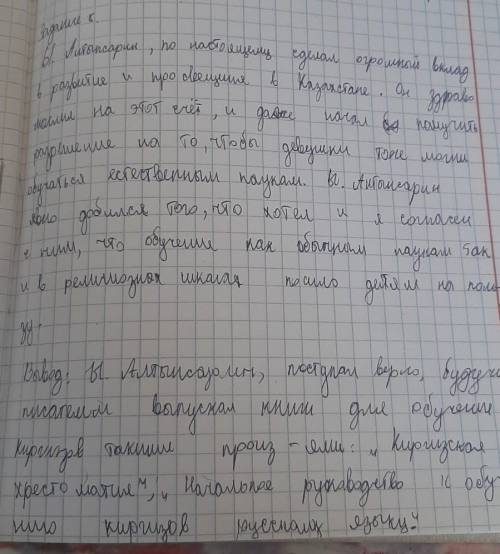 Задание 5.
Ы. Алтынсарин, по настоящему сделал огромный вклад
в развитие и просвещения в Казахстане. Он здраво
мыслил на этот счёт, и даже начал получить
разрешение на то, чтобы девушки тоже могли
обучаться естественным наукам. Ы. Алтынсарин
ясно добился того, что хотел и я согласен
с ним, что обучения как обычным наукам так
и в религиозных школах пошло детям на поль
зу.
Вывод: Ы Алтынсарин, поступал верно, будучи
писателем выпускал книги для обучения
киргизов такими произ-ями: "Киргизская
хрестоматия", "Начальное руководство к обу
нию киргизов русскому языку."